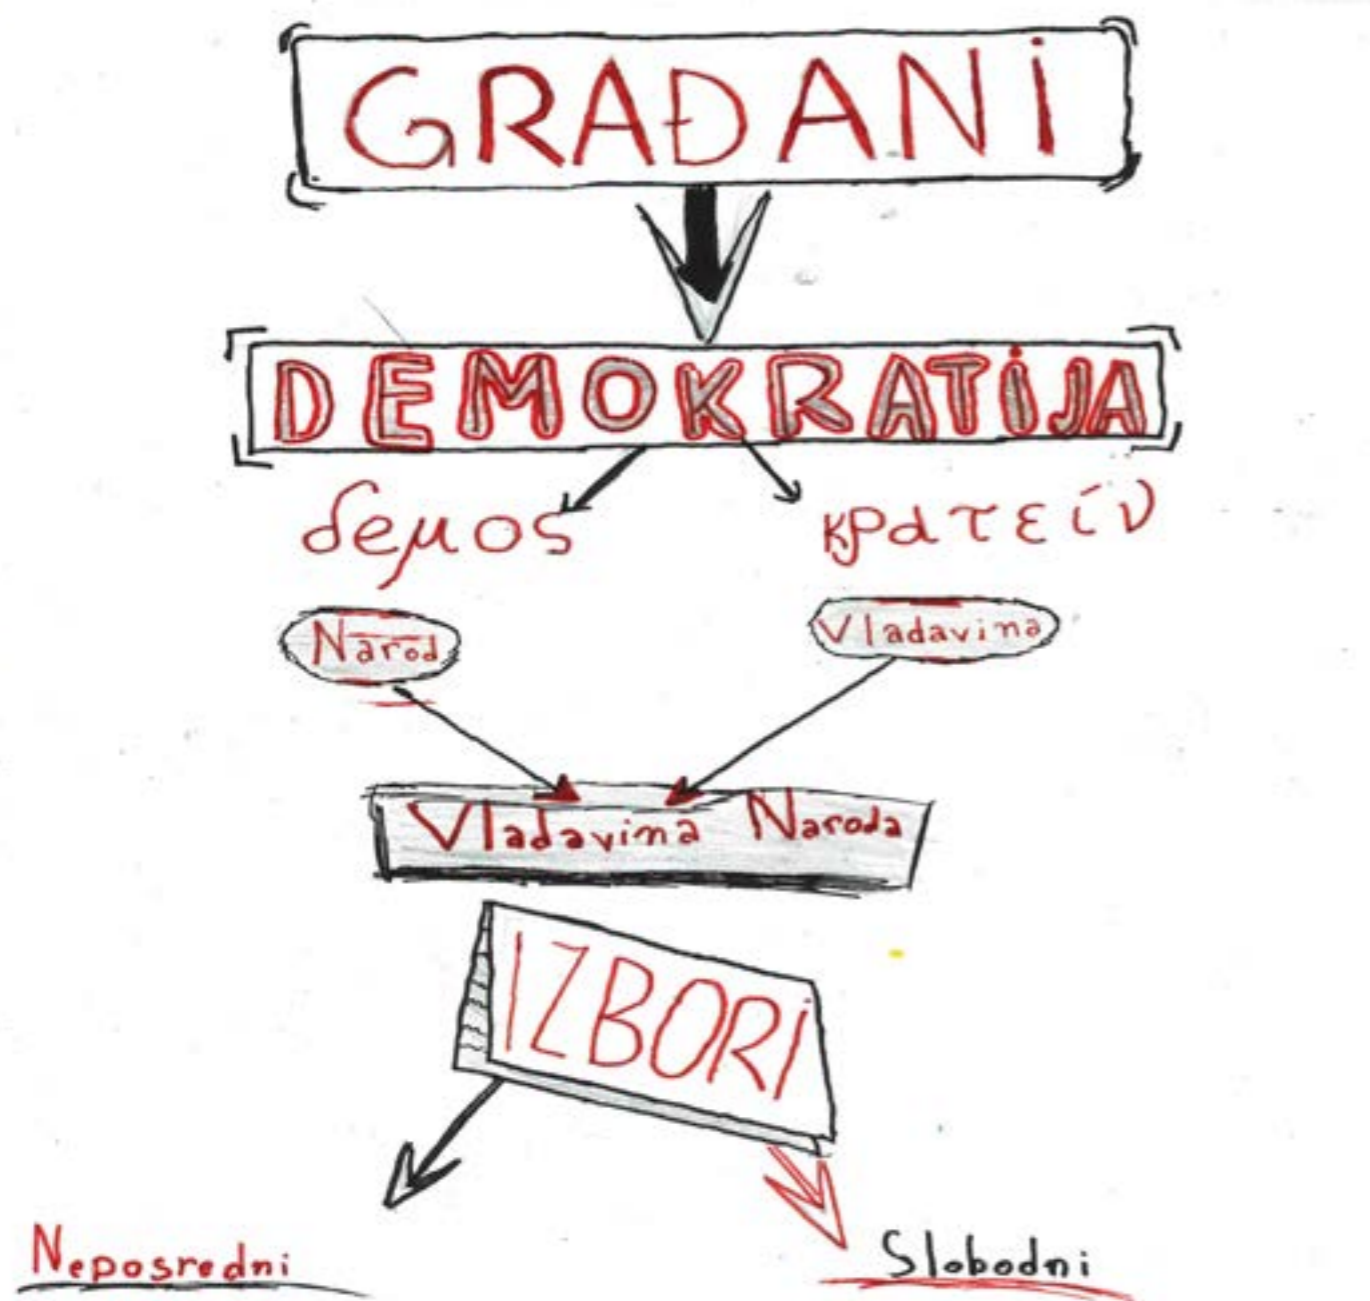 GRAĐANI
DEMOKRATIJA
δεμος κρατείν
Narod Vladavina
Vladavina Naroda
IZBORI
Neposredni Slobodni